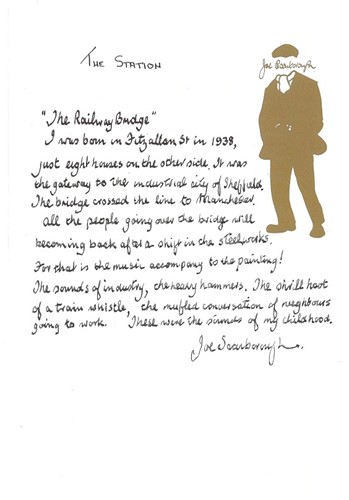 The Station
Joe Scarborough
"The Railway Bridge"
I was born in Fitzallan St in 1938,
just eight houses on the other side. It was
the gateway to the industrial city of Sheffield.
The bridge crossed the line to Manchester.
All the people going over the bridge will
becoming back after a shift in the steelworks.
For that is the music accompany to the painting!
The sounds of industry, the heavy hammers. The shrill hoot
of a train whistle, the mufled conversation of neighbours
going to work. These were the sounds of my childhood.
Joe Scarborough.